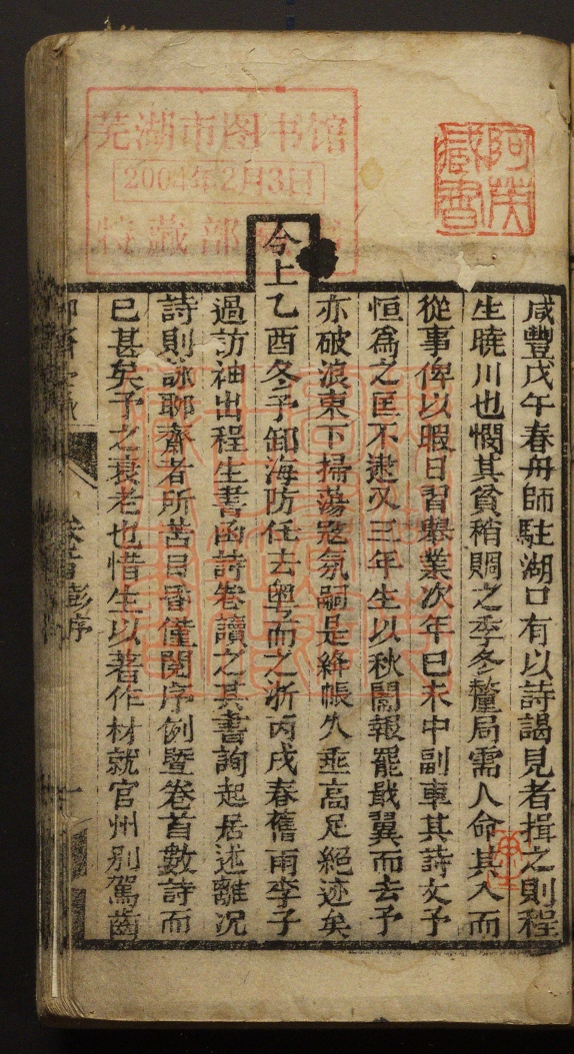 咸豐戊午春舟師駐湖口有以詩謁見者揖之則程
生曉川也憫其貧稍賙之季冬釐局需人命其入而
從事俾以暇日習舉業次年己未中副車其詩文予
恒爲之匡不逮又三年生以秋闈報罷戢翼而去予
亦破浪東下掃蕩寇氛嗣是絳帳久垂高足絕迹矣
今上乙酉冬予卸海防任去粵而之浙丙戌春舊雨李子
過訪袖出程生書函詩卷讀之其書詢起居述離況
詩則詠聊齋者所苦目昏僅閱序例暨卷首數詩而
已甚矣予之衰老也惜生以著作材就官州别駕齒
卷首彭序
一
芜湖市图书馆
2004年2月3日
特藏部
阿英藏書